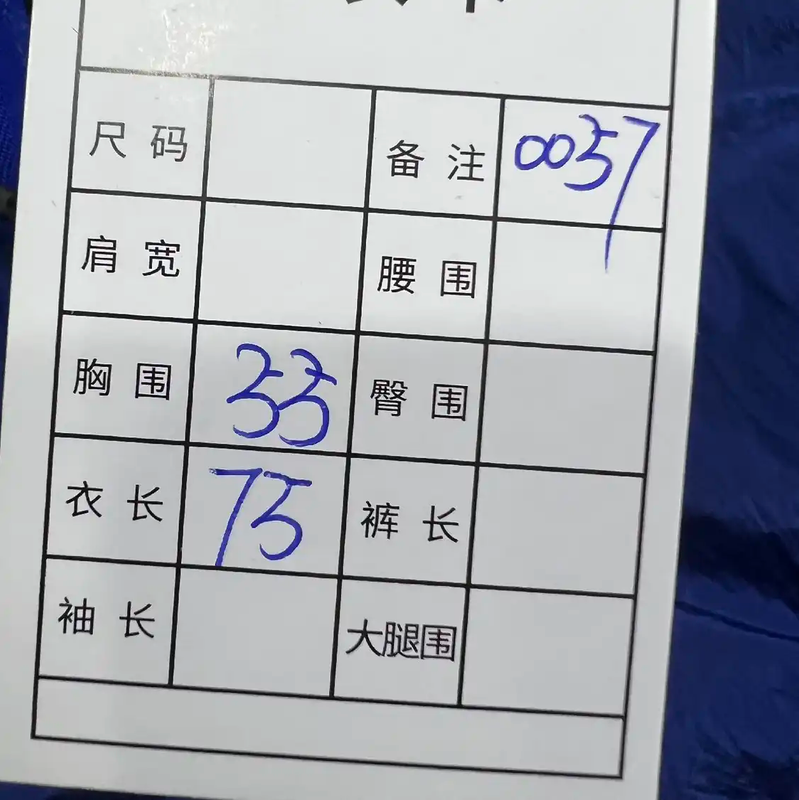 尺码 备注 0057
肩宽 腰围
胸围 55 臀围
衣长 75 裤长
袖长 大腿围